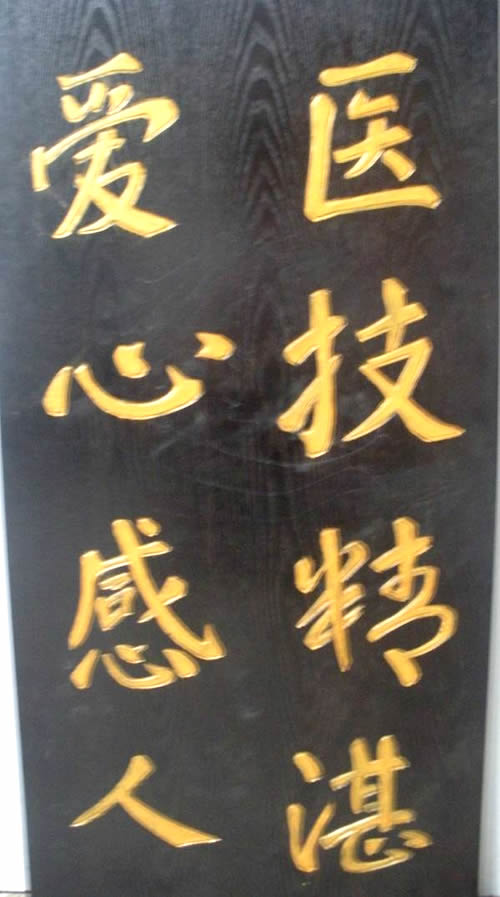 医技精湛
爱心感人